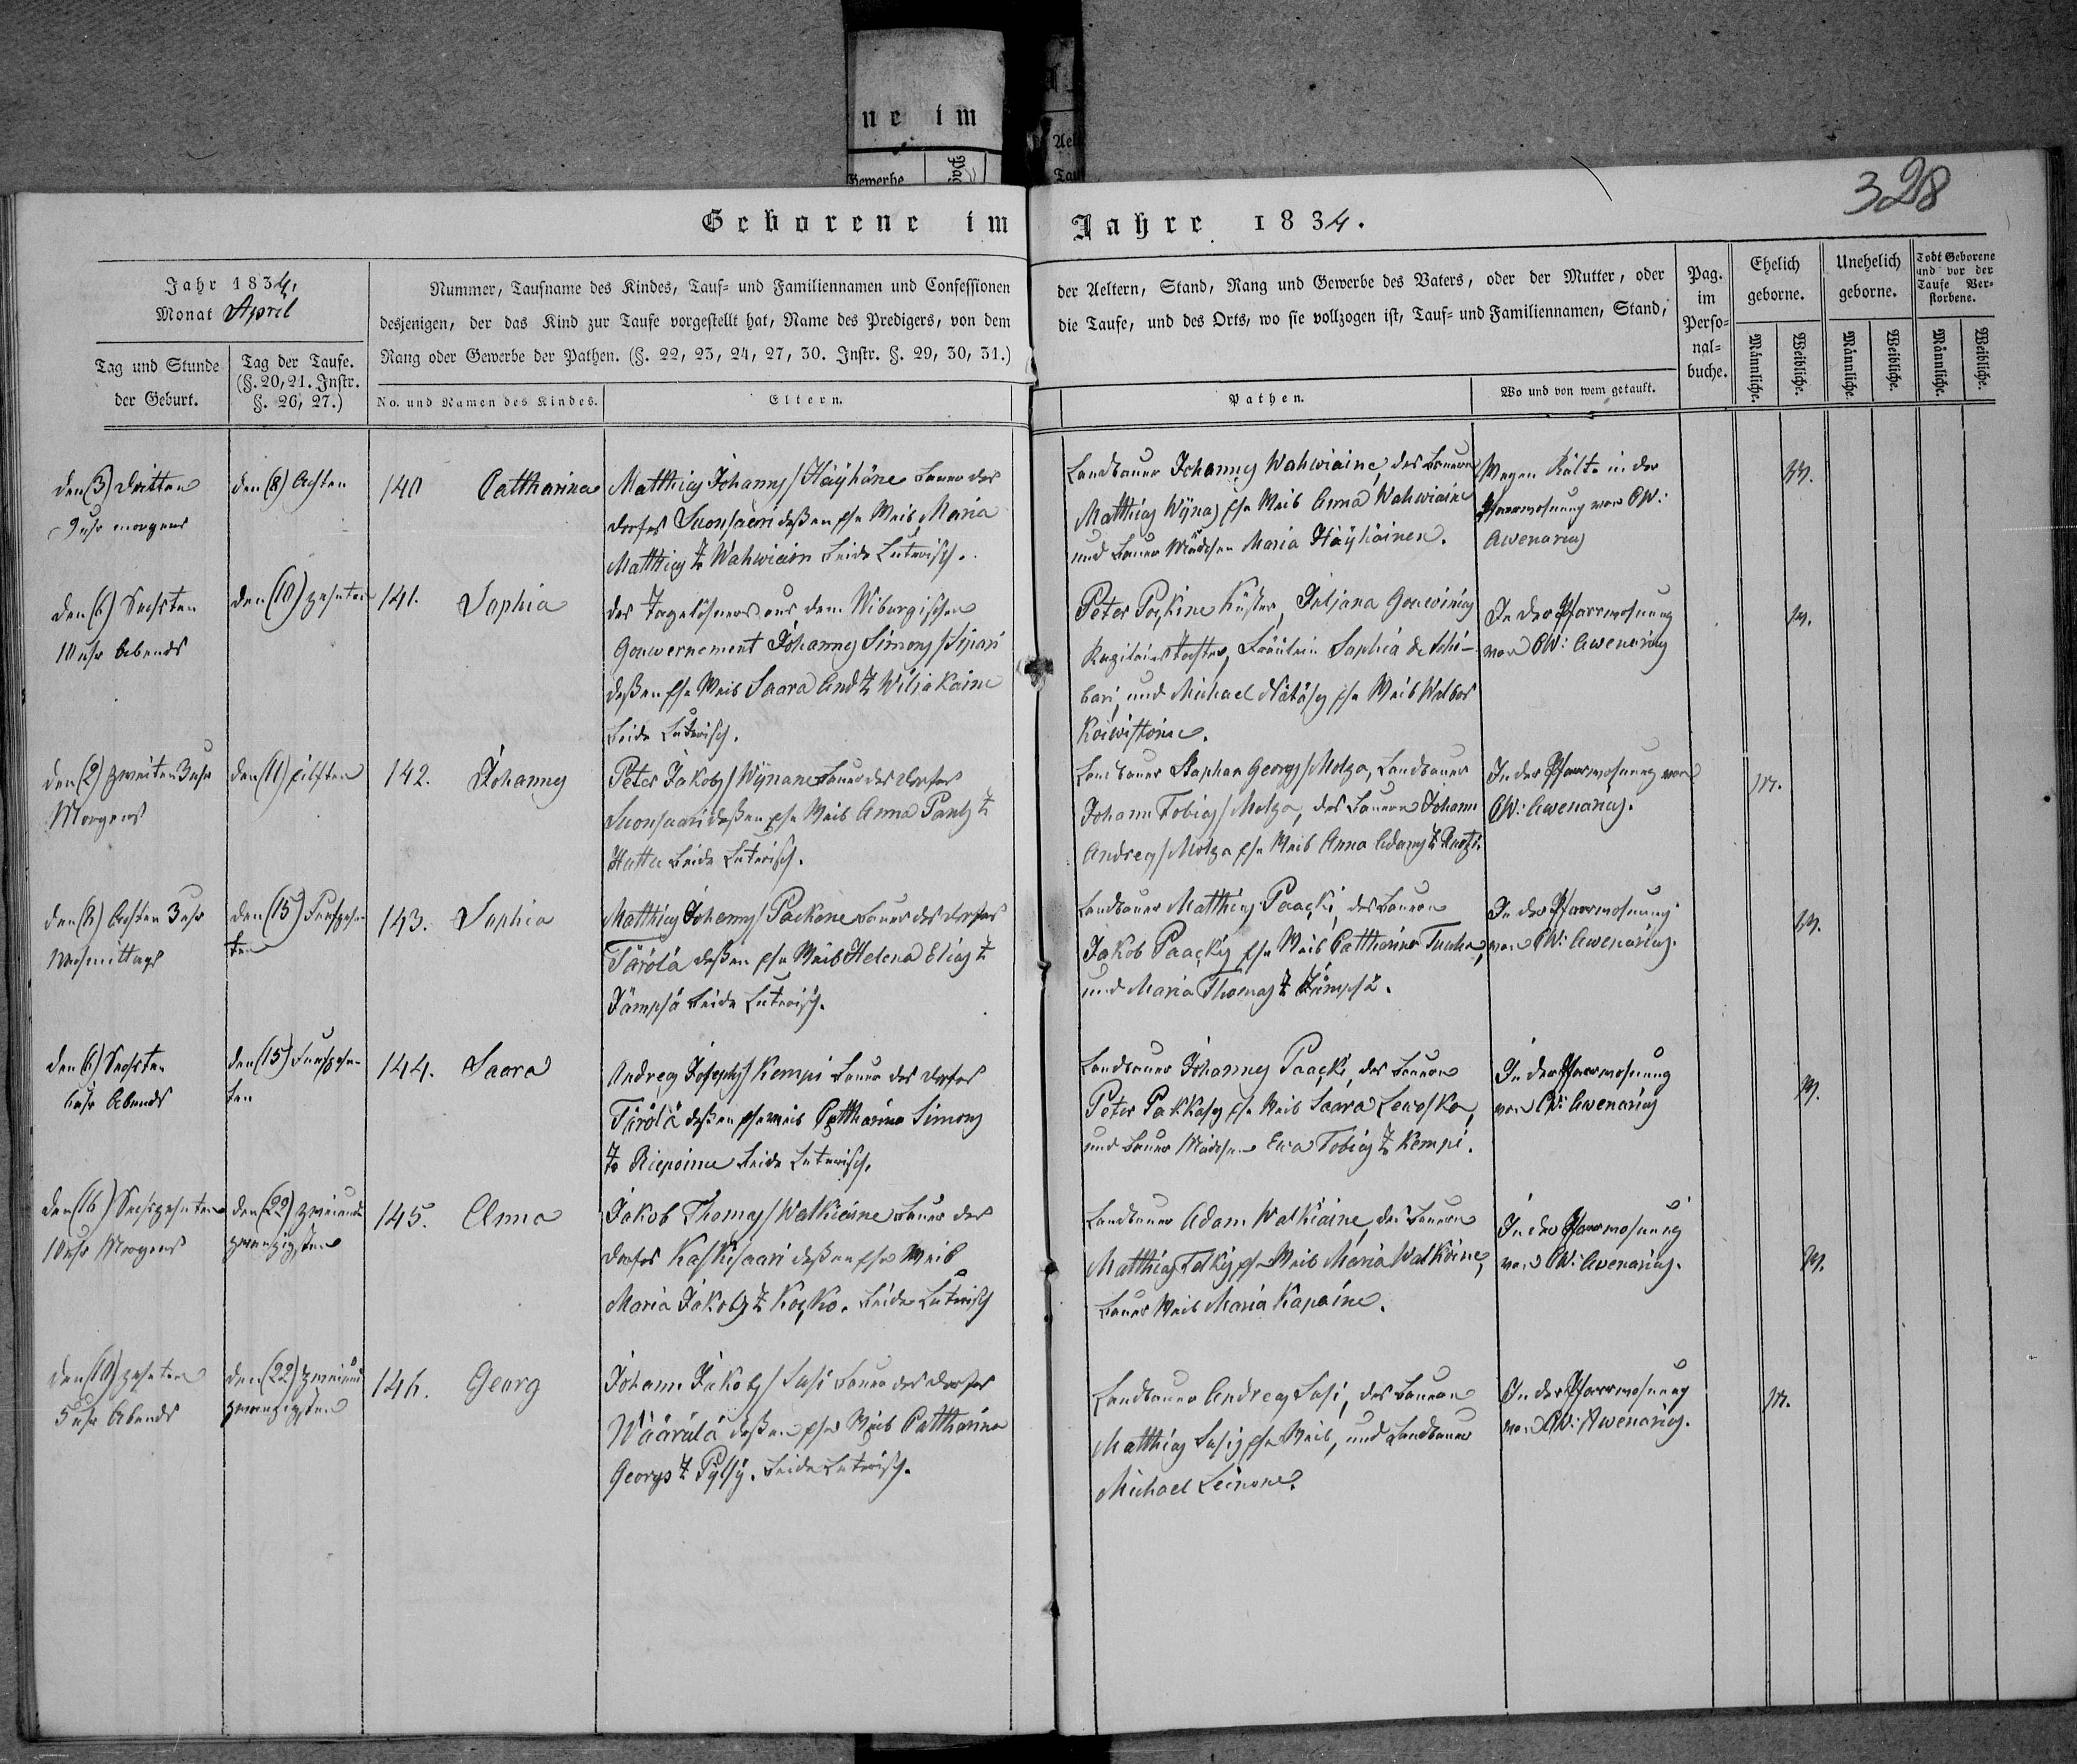 ne im
Gewerbe
328
Geborene im Jahre 1834.
Jahr 1834,
Monat April
Nummer, Taufname des Kindes, Tauf- und Familiennamen und Confessionen
desjenigen, der das Kind zur Taufe vorgestellt hat, Name des Predigers, von dem
Rang oder Gewerbe der Pathen. (§. 22, 23, 24, 27, 30. Instr. §. 29, 30, 31.)
der Aeltern, Stand, Rang und Gewerbe des Vaters, oder der Mutter, oder
die Taufe, und des Orts, wo sie vollzogen ist, Tauf- und Familiennamen, Stand,
Pag.
im
Perso-
nal-
buche.
Ehelich
geborne.
Unehelich
geborne.
Todt Geborene
und vor der
Taufe Ver-
storbene.
Männliche.
Weibliche.
Männliche.
Weibliche.
Männliche.
Weibliche.
Tag und Stunde
der Geburt.
Tag der Taufe.
(§. 20, 21. Instr.
§. 26, 27.)
No. und Namen des Kindes.
Eltern.
Pathen.
Wo und von wem getauft.
den (3) dritten
9 uhr morgens
den (8) Achten
140 Cattharina
Matthias Johanns/Häyhäne bauer des
dorfes Suonsaari deßen ehe Weib Maria
Matthias t. Wahwiain beide Luterisch.
Landbauer Johannes Wahwiaine, des bauern
Matthias Wÿnas ehe Weib Anna Wahwiaine
und bauer Mädchen Maria Häyhäinen.
Wegen Kälte in der
Pfarrwohnung von CW:
Awenarius
W.
den (6) Sechsten
10 uhr Abends
den (10) zehnten
141. Sophia
des Tagelöhners aus dem Wiburgischen
Gouvernement Johannes Simons/Sipari
deßen ehe Weib Saara And t. Wiljakaine
beide Luterisch.
Peter Poskine Küster, Juljana Gouwinius
tochter, Fräulein Sophia de
und Michael ehe Weib Walbor
Koiwistoine.
In der Pfarrwohnung
von CW: Awenarius
W.
den (2) zweiten 3 uhr
Morgens
den (11) eilften
142. Johannes
Peter Jakobs/Wÿnane bauer des dorfes
Suonsaari deßen ehe Weib Anna Pauls t.
Hatta beide Luterisch.
Landbauer Stephan Georgs/Molza, Landbauer
Johann Tobias/Molza, des bauern Johann
Andreas/Molza ehe Weib Anna Adams t.
In der Pfarrwohnung von
CW: Awenarius.
M.
den (8) Achten 3 uhr
Nachmittags
den (15) Funfzehn
ten
143. Sophia
Matthias Johanns/Packane bauer des dorfes
Tärölä deßen ehe Weib Helena Elias t.
Jämpsä beide Luterisch.
Landbauer Matthias Paacki, des bauern
Jakob Paackis ehe Weib Cattharina
und Maria Thomas t. Jämpsä.
In der Pfarrwohnung
von CW: Awenarius.
W.
den (6) Sechsten
6 uhr Abends
den (15) Funfzehn-
ten
144. Saara
Andreas Josephs/Kempi bauer des dorfes
Tärölä deßen ehe weib Cattharina Simons
t. Riepoine beide Luterisch.
Landbauer Johannes Paacki, des bauern
Peter Pakkas ehe Weib Saara Lewoska,
und bauer Mädchen Ewa Tobias t. Kempi.
In der Pfarrwohnung
von CW: Awenarius
W.
den (16) Sechszehnten
10 uhr Morgens
den (22) zweiund
zwanzigsten
145. Anna
Jakob Thomas/Walkiaine bauer des
dorfes Kaskisaari deßen ehe Weib
Maria Jakobs t. Kosko. beide Luterisch
Landbauer Adam Walkiaine, des bauern
Matthias Telkis ehe Weib Maria Walkoine,
bauer Weib Maria Kapaine.
In der Pfarrwohnung
von CW: Awenarius.
W.
den (10) zehnten
5 uhr Abends
den (22) zweiund
zwanzigsten
146. Georg
Johann Jakobs/Susi bauer des dorfes
Wäärälä deßen ehe Weib Cattharina
Georgs t. Pÿlsÿ. beide Luterisch.
Landbauer Andreas Susi, des bauern
Matthias Susis ehe Weib, und Landbauer
Michael Leinone.
In der Pfarrwohnung
von CW: Awenarius.
M.